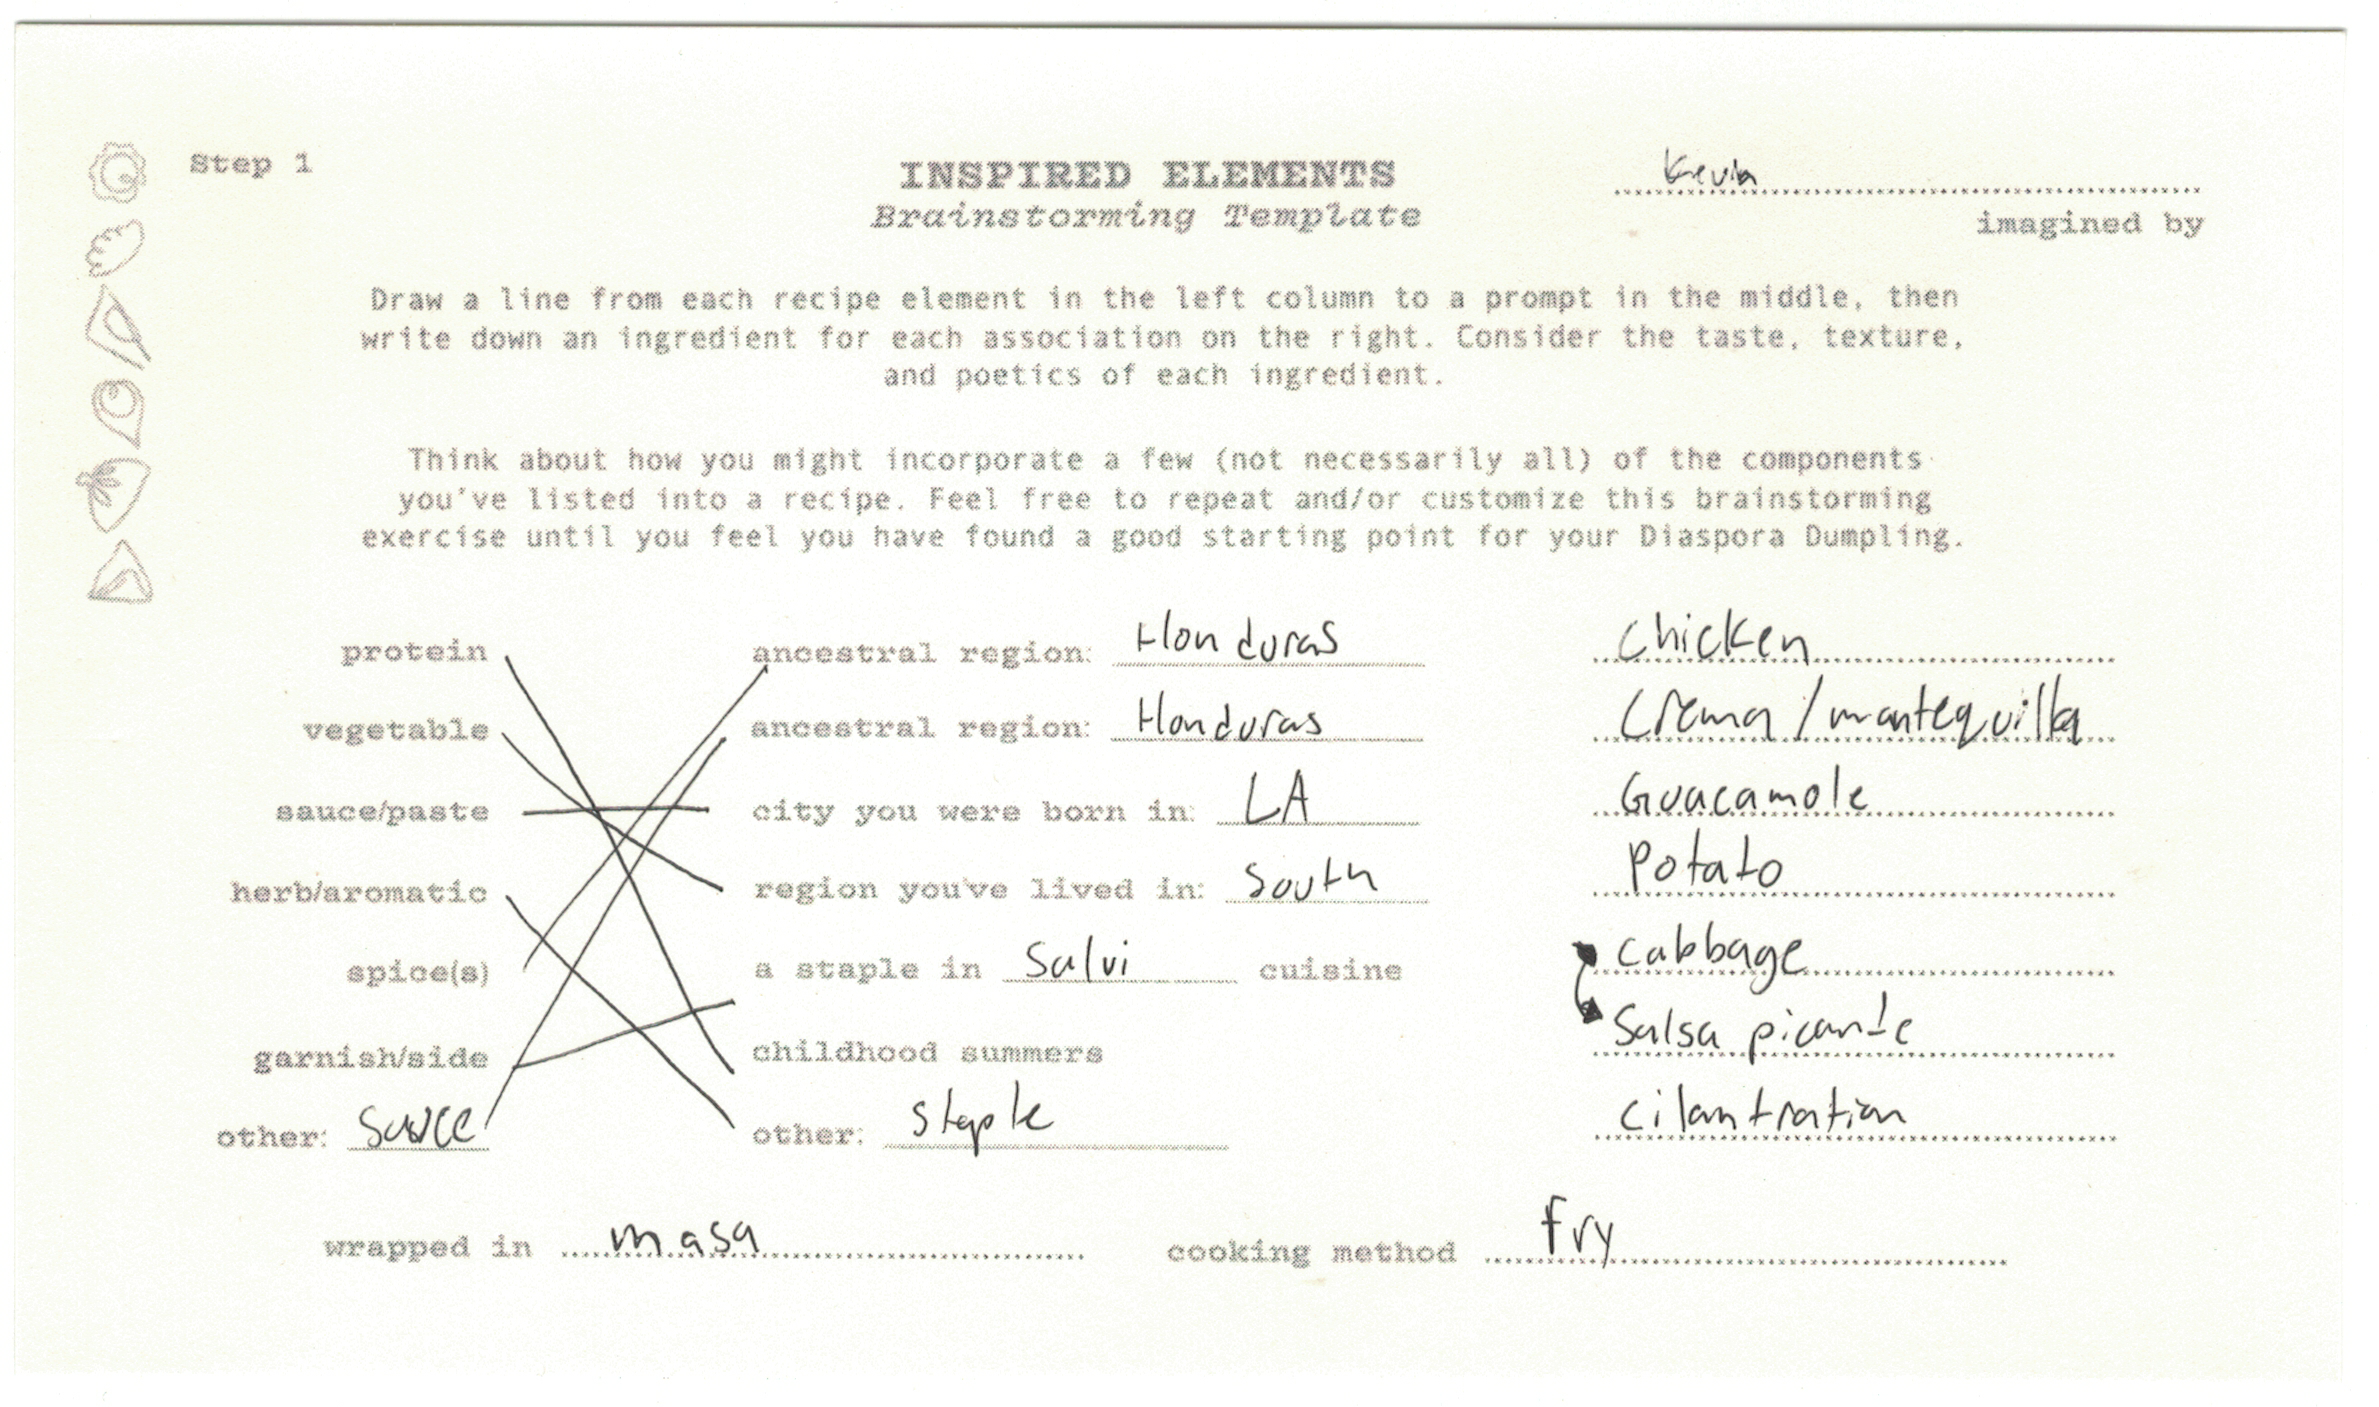 Step 1
INSPIRED ELEMENTS
Brainstorming Template
Kevin
imagined by
Draw a line from each recipe element in the left column to a prompt in the middle, then
write down an ingredient for each association on the right. Consider the taste, texture,
and poetics of each ingredient.
Think about how you might incorporate a few (not necessarily all) of the components
you've listed into a recipe. Feel free to repeat and/or customize this brainstorming
exercise until you feel you have found a good starting point for your Diaspora Dumpling.
protein ancestral region: Honduras Chicken
vegetable ancestral region: Honduras Crema / mantequilla
sauce/paste city you were born in: LA Guacamole
herb/aromatic region you've lived in: South Potato
spice(s) a staple in Salvi cuisine Cabbage
garnish/side childhood summers Salsa picante
other: Sauce other: Staple cilantration
wrapped in masa cooking method fry